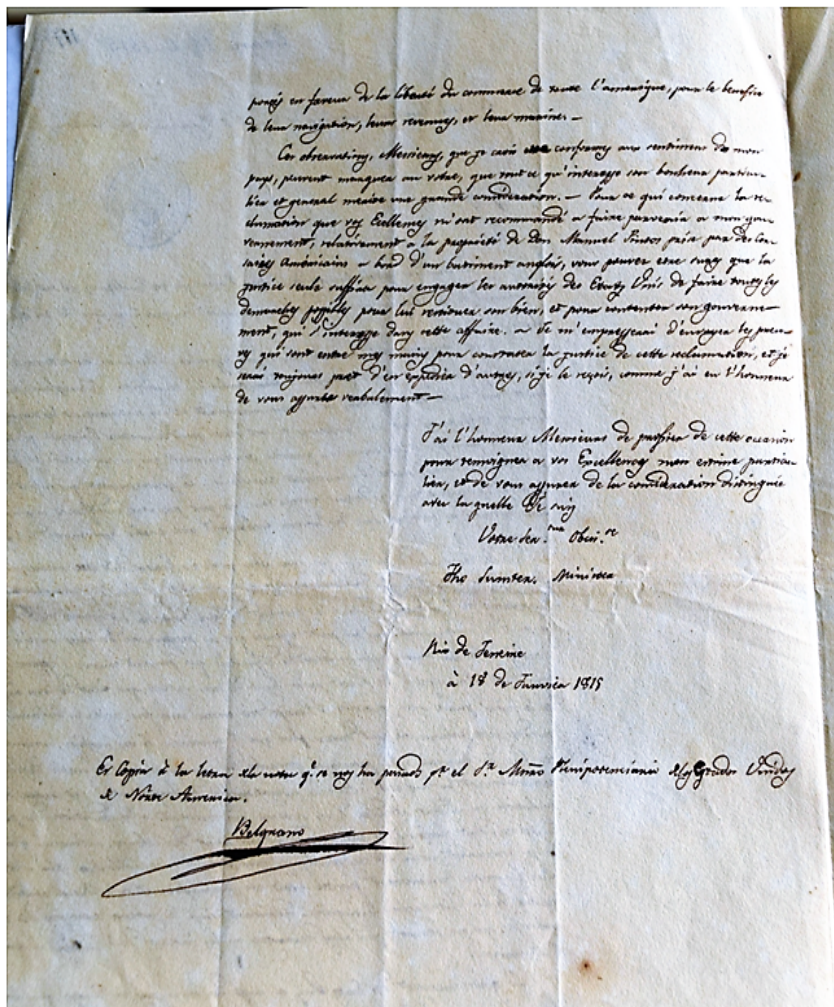 en faveur de la liberté du commerce de toute l'amerique, pour le benefice
de leur navigation, leurs revenues, et leur marine. —
Ces observations, Messieurs, que je crois conformes aux sentimens de mon
pays, peuvent manquer au votre, que tout ce qu'interesse son bonheur particu-
lier et general merite une grande consideration. — Pour ce qui concerne la re-
clamation que vos Exellences m'ont recommandé a faire parvenir a mon gou-
vernement, relativement a la propriété de Don Manuel Pintos pris par des Cor-
saires Américains a bord d'un batiment anglais, vous pouvez etre surs que la
justice seule suffira pour engager les autorités des Etats Unis de faire toutes les
demarches possibles pour lui restituer son bien, et pour contenter son gouverne-
ment, qui s'interesse dans cette affaire. — Je m'empresserai d'envoyer les preu-
ves qui sont entre mes mains pour constater la justice de cette reclamation, et je
serai toujours pret d'en expedier d'autres, si je le reçois, comme j'ai eu l'honneur
de vous assurer verbalement —
J'ai l'honneur Messieurs de profiter de cette occasion
pour temoigner a vos Excellences mon estime particu-
lier, et de vous assurer de la consideration distinguée
avec la quelle Je suis
Votre Obei.
Tho Sumter. Ministre
Rio de Jeneire
à 18 de Janvier 1815
Es Copia à la letra de la nota q.e se nos ha pasado p.r el S.r Mntro Plenipotenciario de los Estados Unidos
de Norte America.
Belgrano